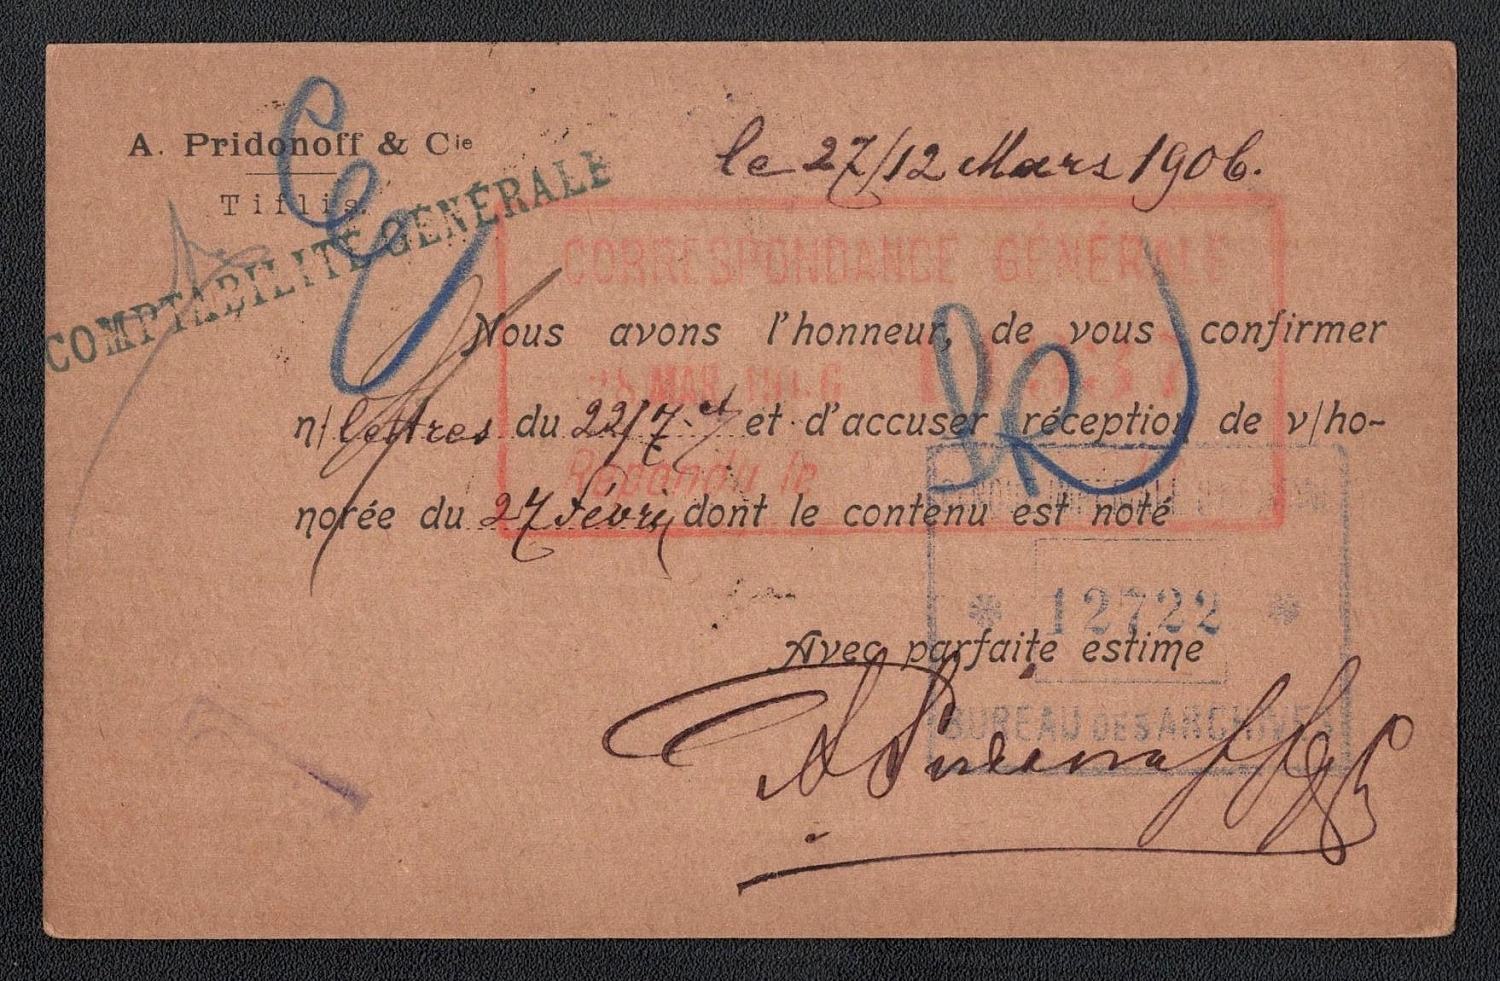 A. Pridonoff & Cie
Tiflis.
COMPTABILITÉ GÉNÉRALE
le 27/12 Mars 1906.
CORRESPONDANCE GÉNÉRALE
Nous avons l'honneur, de vous confirmer
MAR
n/lettres du 22/7. ct et d'accuser réception de v/ho-
Repondu le
norée du 27 Févr; dont le contenu est noté
* 12722 *
Avec parfaite estime
BUREAU DES ARCHIVES
A Pridonoff & Cie